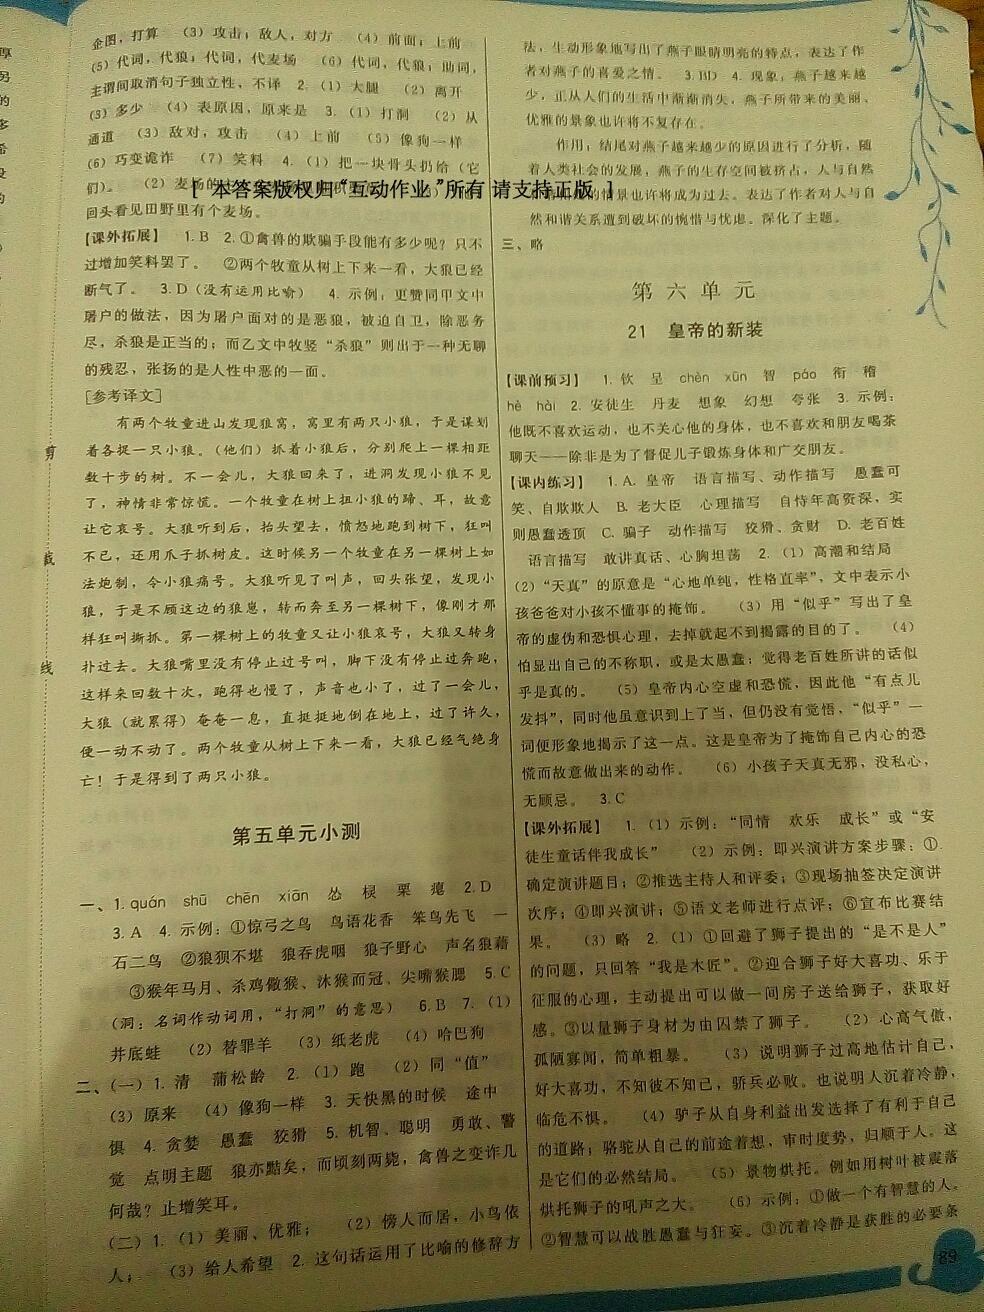 企图，打算　（3）攻击；敌人，对方　（4）前面；上前
（5）代词，代狼；代词，代麦场　（6）代词，代狼；助词，
主谓间取消句子独立性，不译　2.（1）大腿　（2）离开
（3）多少　（4）表原因，原来是　3.（1）打洞　（2）从
通道　（3）敌对，攻击　（4）上前　（5）像狗一样
（6）巧变诡诈　（7）笑料　4.（1）把一块骨头扔给（它
们）。（2）麦场
[ 本答案版权归“互动作业”所有 请支持正版 ]
回头看见田野里有个麦场。
【课外拓展】　1.B　2.①禽兽的欺骗手段能有多少呢？只不
过增加笑料罢了。　②两个牧童从树上下来一看，大狼已经
断气了。　3.D（没有运用比喻）　4.示例：更赞同甲文中
屠户的做法，因为屠户面对的是恶狼，被迫自卫，除恶务
尽，杀狼是正当的；而乙文中牧竖“杀狼”则出于一种无聊
的残忍，张扬的是人性中恶的一面。
[参考译文]
有两个牧童进山发现狼窝，窝里有两只小狼，于是谋划
着各捉一只小狼。（他们）抓着小狼后，分别爬上一棵相距
数十步的树。不一会儿，大狼回来了，进洞发现小狼不见
了，神情非常惊慌。一个牧童在树上扭小狼的蹄、耳，故意
让它哀号。大狼听到后，抬头望去，愤怒地跑到树下，狂叫
不已，还用爪子抓树皮。这时候另一个牧童在另一棵树上如
法炮制，令小狼痛号。大狼听见了叫声，回头张望，发现小
狼，于是不顾这边的狼崽，转而奔至另一棵树下，像刚才那
样狂叫撕抓。第一棵树上的牧童又让小狼哀号，大狼又转身
扑过去。大狼嘴里没有停止过号叫，脚下没有停止过奔跑，
这样来回数十次，跑得也慢了，声音也小了，过了一会儿，
大狼（就累得）奄奄一息，直挺挺地倒在地上，过了许久，
便一动不动了。两个牧童从树上下来一看，大狼已经气绝身
亡！于是得到了两只小狼。
第五单元小测
一、1.quán　shū　chēn　xiān　怂　棂　栗　瘪　2.D
3.A　4.示例：①惊弓之鸟　鸟语花香　笨鸟先飞　一
石二鸟　②狼狈不堪　狼吞虎咽　狼子野心　声名狼藉
③猴年马月、杀鸡儆猴、沐猴而冠、尖嘴猴腮　5.C
（洞：名词作动词用，“打洞”的意思）　6.B　7.（1）
井底蛙　（2）替罪羊　（3）纸老虎　（4）哈巴狗
二、（一）1.清　蒲松龄　2.（1）跑　（2）同“值”
（3）原来　（4）像狗一样　3.天快黑的时候　途中
惧　4.贪婪　愚蠢　狡猾　5.机智、聪明　勇敢、警
觉　点明主题　狼亦黠矣，而顷刻两毙，禽兽之变诈几
何哉？止增笑耳。
（二）1.（1）美丽、优雅；　（2）傍人而居，小鸟依
人；　（3）给人希望　2.这句话运用了比喻的修辞方
法，生动形象地写出了燕子眼睛明亮的特点，表达了作
者对燕子的喜爱之情。　3.BD　4.现象：燕子越来越
少，正从人们的生活中渐渐消失，燕子所带来的美丽、
优雅的景象也许将不复存在。
作用：结尾对燕子越来越少的原因进行了分析，随
着人类社会的发展，燕子的生存空间被挤占，人与自然
的情景也许将成为过去。表达了作者对人与自
然和谐关系遭到破坏的惋惜与忧虑。深化了主题。
三、略
第六单元
21　皇帝的新装
【课前预习】　1.钦　呈　chèn　xūn　智　páo　衔　稽
hè　hài　2.安徒生　丹麦　想象　幻想　夸张　3.示例：
他既不喜欢运动，也不关心他的身体，也不喜欢和朋友喝茶
聊天——除非是为了督促儿子锻炼身体和广交朋友。
【课内练习】　1.A.皇帝　语言描写、动作描写　愚蠢可
笑、自欺欺人　B.老大臣　心理描写　自恃年高资深，实
则愚蠢透顶　C.骗子　动作描写　狡猾、贪财　D.老百姓
语言描写　敢讲真话、心胸坦荡　2.（1）高潮和结局
（2）“天真”的原意是“心地单纯，性格直率”，文中表示小
孩爸爸对小孩不懂事的掩饰。　（3）用“似乎”写出了皇
帝的虚伪和恐惧心理，去掉就起不到揭露的目的了。　（4）
怕显出自己的不称职，或是太愚蠢；觉得老百姓所讲的话似
乎是真的。　（5）皇帝内心空虚和恐慌，因此他“有点儿
发抖”，同时他虽意识到上了当，但仍没有觉悟，“似乎”一
词便形象地揭示了这一点。这是皇帝为了掩饰自己内心的恐
慌而故意做出来的动作。　（6）小孩子天真无邪，没私心，
无顾忌。　3.C
【课外拓展】　1.（1）示例：“同情　欢乐　成长”或“安
徒生童话伴我成长”　（2）示例：即兴演讲方案步骤：①
确定演讲题目；②推选主持人和评委；③现场抽签决定演讲
次序；④即兴演讲；⑤语文老师进行点评；⑥宣布比赛结
果。　（3）略　2.（1）①回避了狮子提出的“是不是人”
的问题，只回答“我是木匠”。②迎合狮子好大喜功、乐于
征服的心理，主动提出可以做一间房子送给狮子，获取好
感。③以量狮子身材为由囚禁了狮子。　（2）心高气傲，
孤陋寡闻，简单粗暴。　（3）说明狮子过高地估计自己，
好大喜功，不知彼不知己，骄兵必败。也说明人沉着冷静，
临危不惧。　（4）驴子从自身利益出发选择了有利于自己
的道路；骆驼从自己的前途着想，审时度势，归顺于人。这
是它们的必然结局。　（5）景物烘托。例如用树叶被震落
烘托狮子的吼声之大。　（6）示例：①做一个有智慧的人。
②智慧可以战胜愚蠢与狂妄。③沉着冷静是获胜的必要条
89
剪
裁
线